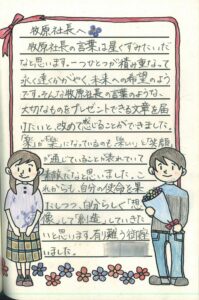 牧原社長へ
牧原社長の言葉は星くずみたいだ
なと思います。一つひとつが積み重なって
永く遠くかがやく未来への希望のよう
です。そんな牧原社長の言葉のような、
大切なものをプレゼントできる文章を届
けたいと、改めて感じることができました。
「薬」が「楽」になっているのも「楽しい」と「笑顔」
が通じていることが表れていて
素敵だなと思いました。こ
れからも、自分の使命を果
たしつつ、自分らしく「想
像」して「創造」していきた
いと思います。有り難う御座
いました。